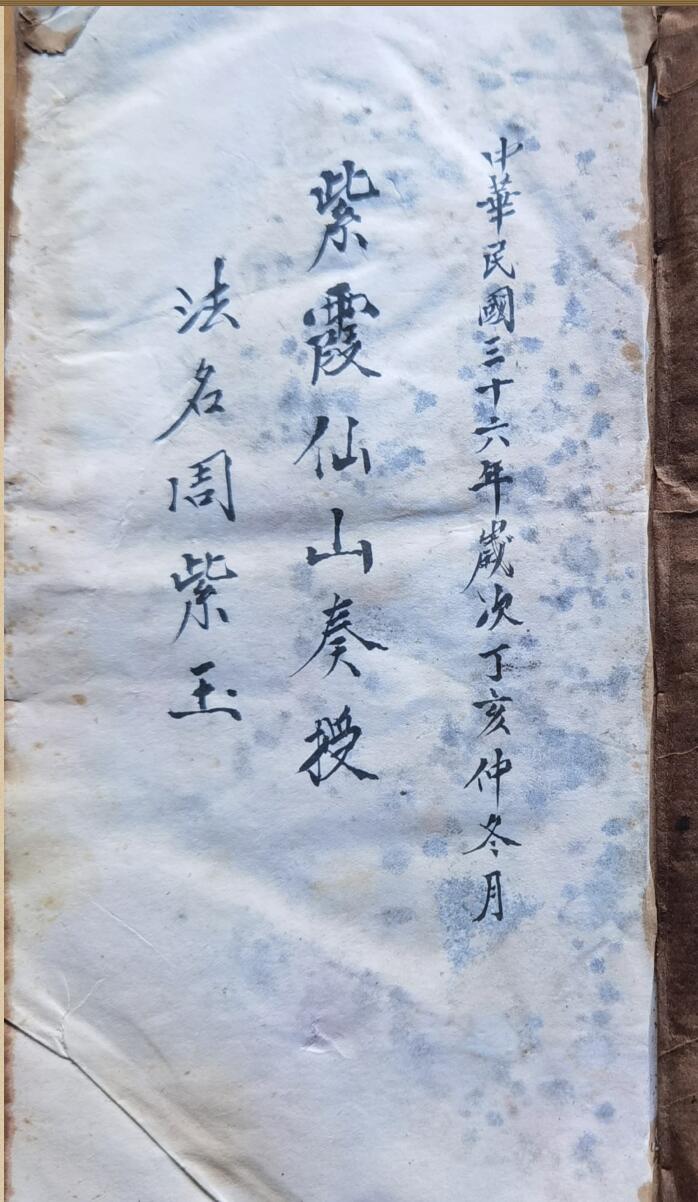 中華民國三十六年歲次丁亥仲冬月
紫霞仙山奏授
法名周紫玉